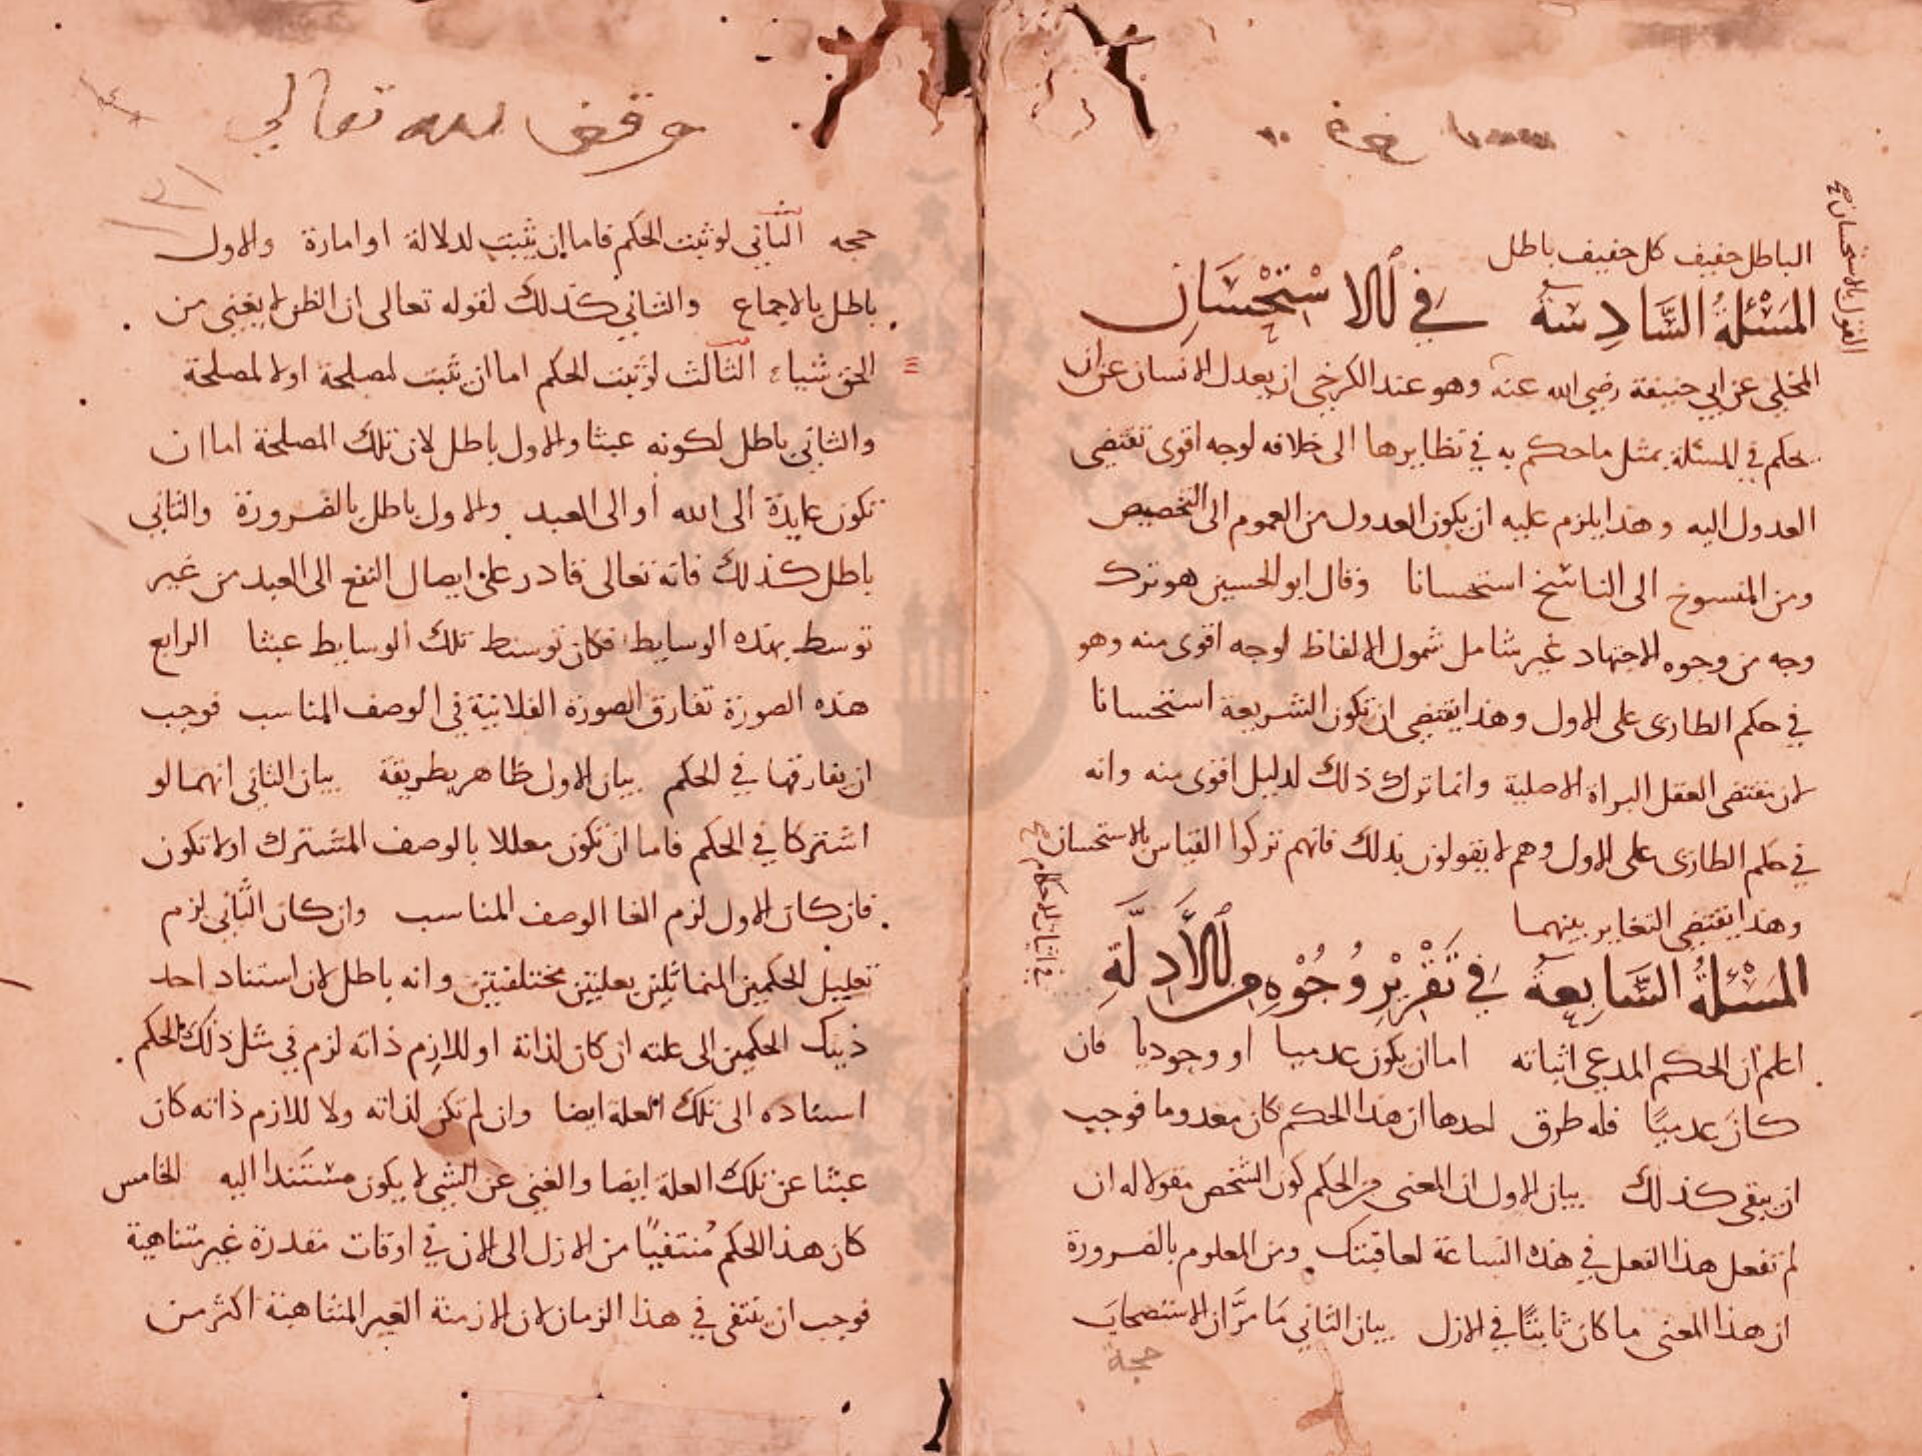 الباطل حفيف كل حفيف باطل
المسئلة السادسة في الاستحسان
المحكي عن ابي حنيفة رضي الله عنه وهو عند الكرخي ان يعدل الانسان عن ان
يحكم في المسئلة بمثل ما حكم به في نظايرها الى خلافه لوجه اقوى تقتضى
العدول اليه وهذا يلزم عليه ان يكون العدول من العموم الى التخصيص
ومن المنسوخ الى الناسخ استحسانا وقال ابو الحسين هو ترك
وجه من وجوه الاجتهاد غير شامل شمول الالفاظ لوجه اقوى منه وهو
في حكم الطارى على الاول وهذا يقتضي ان تكون الشريعة استحسانا
لان مقتضى العقل البراة الاصلية وانما ترك ذلك لدليل اقوى منه وانه
في حكم الطارى على الاول وهم لا يقولون بذلك فانهم تركوا القياس بالاستحسان
وهذا يقتضي التغاير بينهما
المسئلة السابعة في تقرير وجوه من الادلة
اعلم ان الحكم المدعي اثباته اما ان يكون عدميا او وجوديا فان
كان عدميا فله طرق احدها ان هذا الحكم كان معدوما فوجب
ان يبقى كذلك بيان الاول ان المعنى من الحكم كون الشخص مقولا له ان
لم تفعل هذا الفعل في هذه الساعة لعاقبتك ومن المعلوم بالضرورة
ان هذا المعنى ما كان ثابتا في الازل بيان الثاني ما مر ان الاستصحاب
حجة
القول بالاستحسان
في اثبات الاحكام
وقف لله تعالى
حجه الثاني لو ثبت الحكم فاما ان يثبت لدلالة او امارة والاول
باطل بالاجماع والثاني كذلك لقوله تعالى ان الظن لا يغني من
الحق شياء الثالث لو ثبت الحكم اما ان ثبت لمصلحة او لا لمصلحة
والثاني باطل لكونه عبثا والاول باطل لان تلك المصلحة اما ان
تكون عايدة الى الله أو الى العبد والاول باطل بالضرورة والثاني
باطل كذلك فانه تعالى قادر على ايصال النفع الى العبد من غير
توسط بهذه الوسايط فكان توسط تلك الوسايط عبثا الرابع
هذه الصورة تفارق الصورة الفلانية في الوصف المناسب فوجب
ان يفارقها في الحكم بيان الاول ظاهر بطريقة بيان الثاني انهما لو
اشتركا في الحكم فاما ان تكون معللا بالوصف المشترك او لا تكون
فان كان الاول لزم الغا الوصف المناسب وان كان الثاني لزم
تعليل الحكمين المتماثلين بعليتين مختلفتين وانه باطل لان استناد احد
ذينك الحكمين الى علته ان كان لذاتة او للازم ذاته لزم في مثل ذلك الحكم
اسناده الى تلك العلة ايضا وان لم تكن لذاته ولا للازم ذاته كان
عبثا عن تلك العلة ايضا والغني عن الشي لا يكون مستندا اليه الخامس
كان هذا الحكم منتفيا من الازل الى الان في اوقات مقدرة غير متناهية
فوجب ان ينتفي في هذا الزمان لان الازمنة الغير المتناهية اكثر من